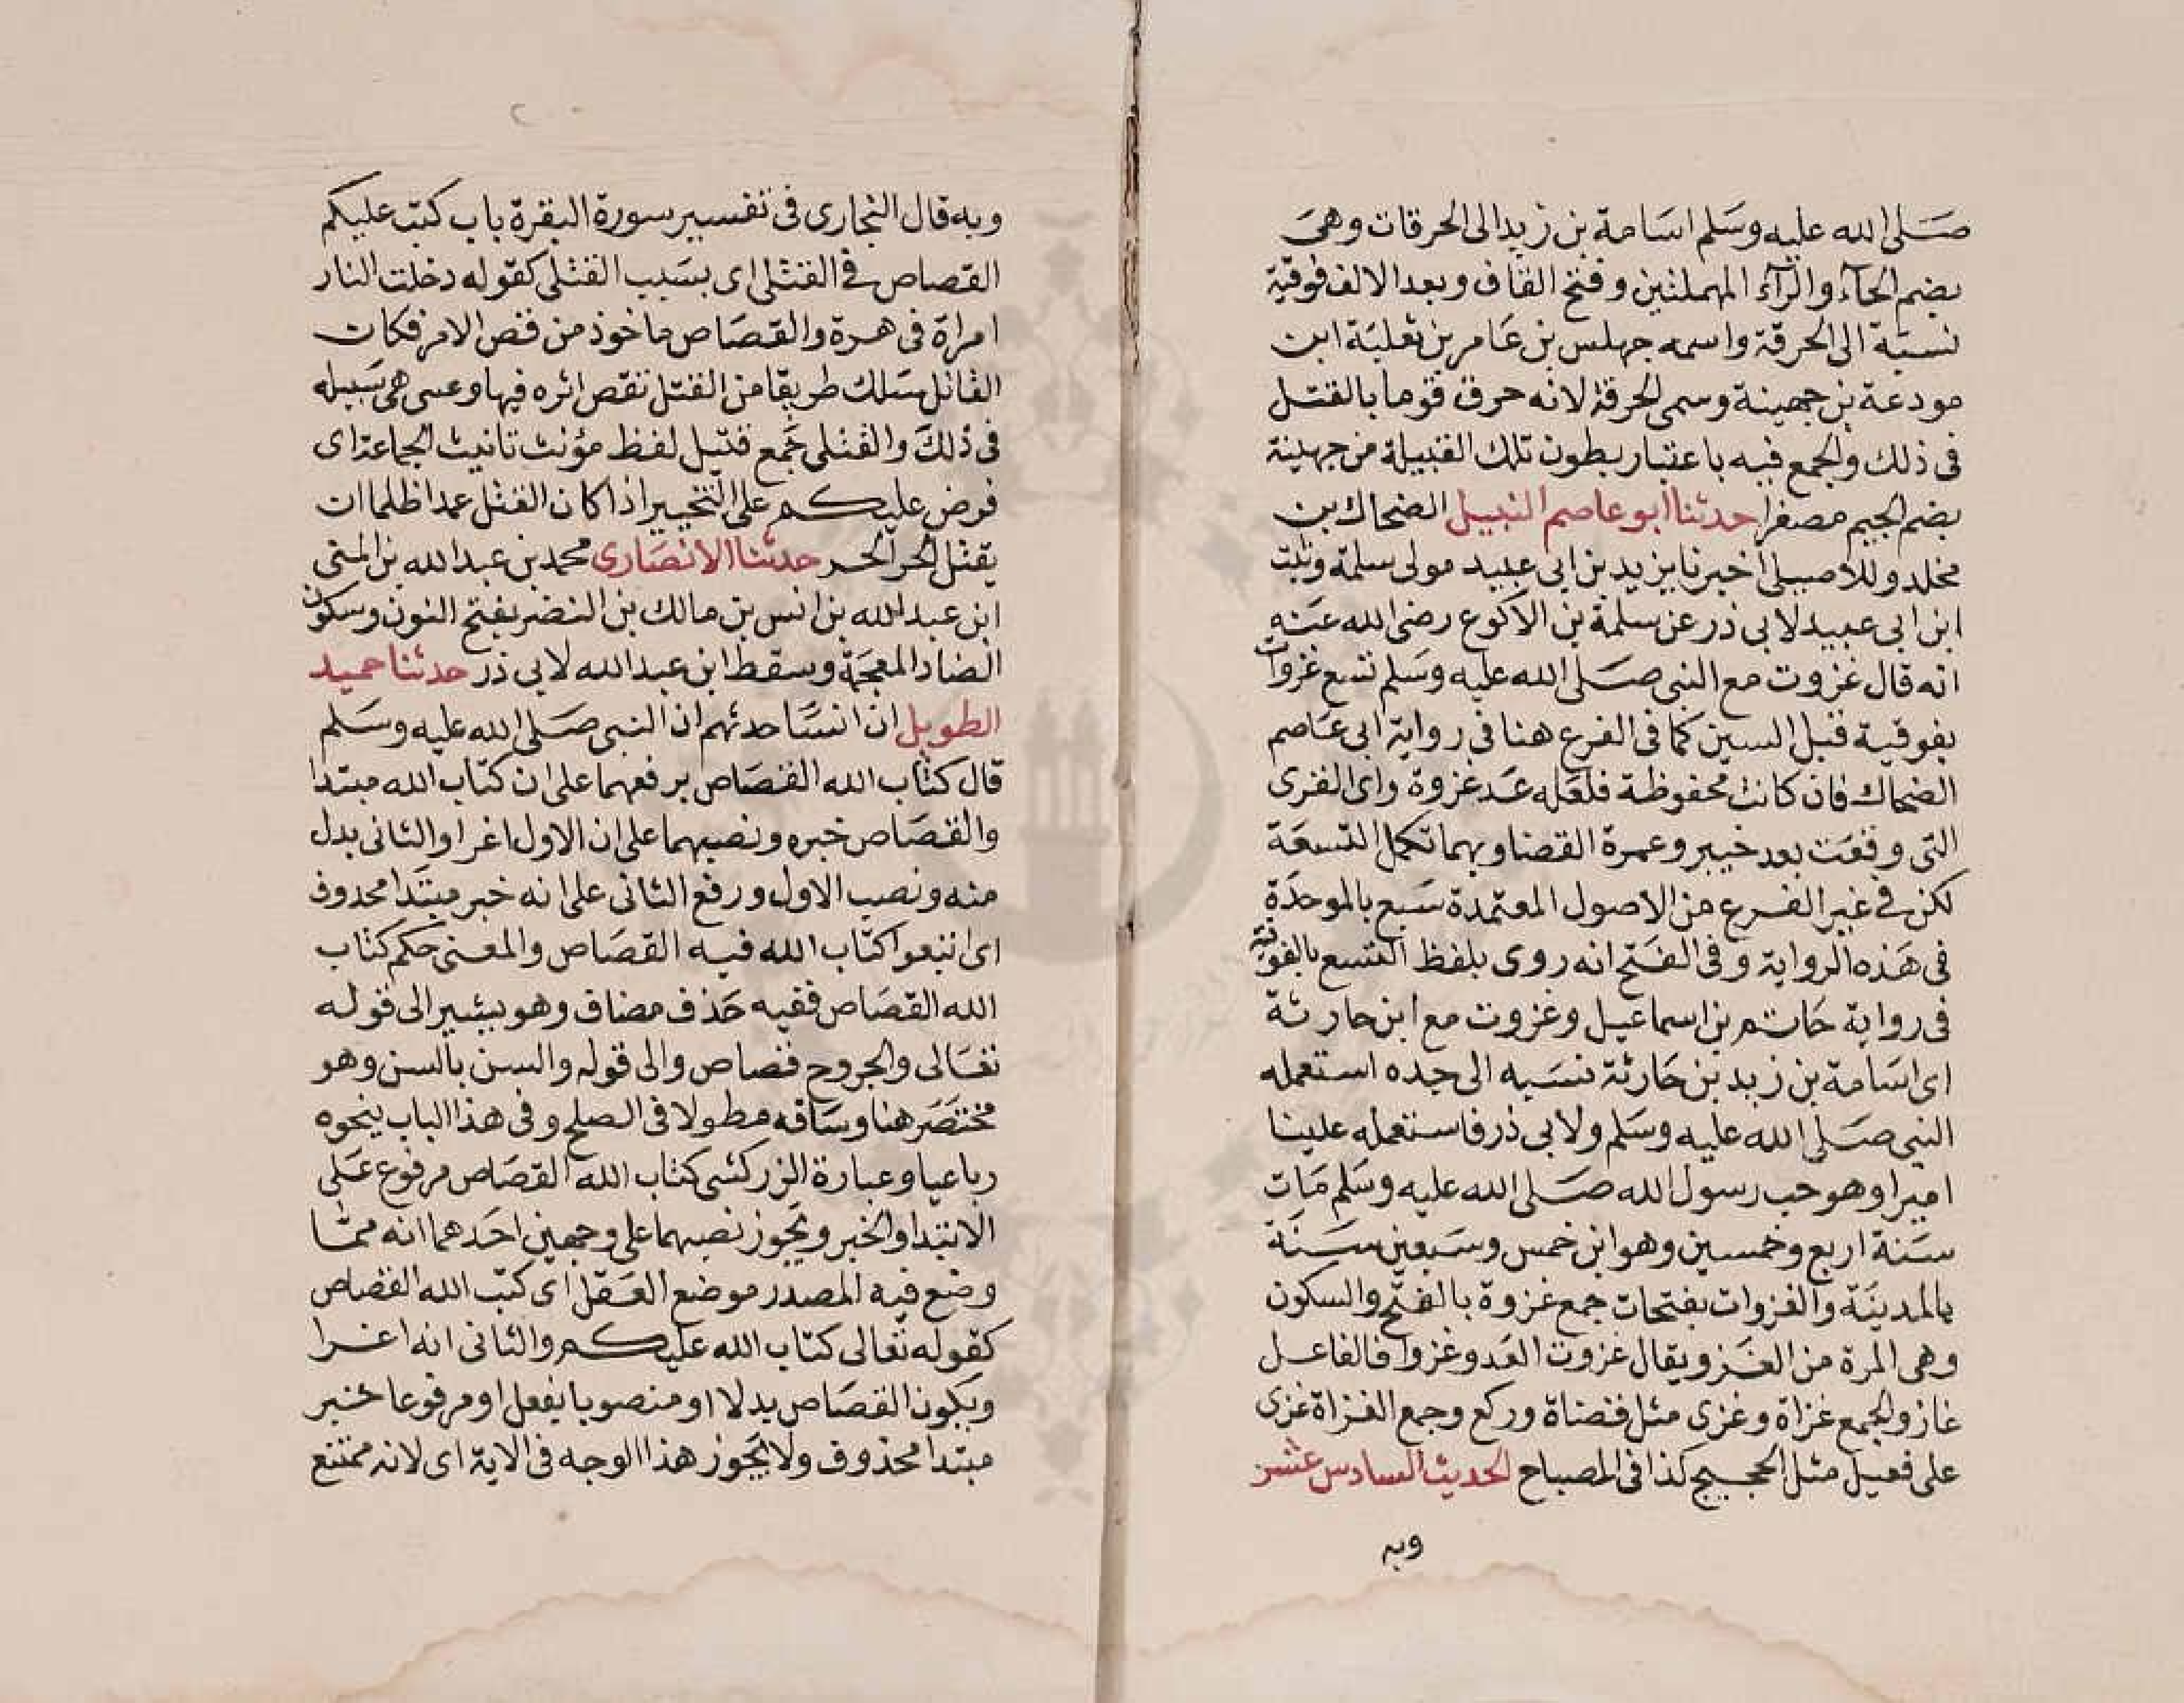 صلى الله عليه وسلم اسامة بن زيد الى الحرقات وهى
بضم الحآء والرآء المهملتين وفتح القاف وبعد الالف فوقية
نسبة الى الحرقة واسمه جهلس بن عامر بن ثعلبة ابن
مودعة بن جهينة وسمى الحرقة لانه حرق قوما بالقتل
فى ذلك والجمع فيه باعتبار بطون تلك القبيلة من جهينة
بضم الجيم مصغرا حدثنا ابو عاصم النبيل الضحاك بن
مخلد وللاصيلى اخبرنا يزيد بن ابى عبيد مولى سلمة وثبت
ابن ابى عبيد لابى ذر عن سلمة بن الاكوع رضى الله عنه
انه قال غزوت مع النبى صلى الله عليه وسلم تسع غزوات
بفوقية قبل السين كما فى الفرع هنا فى رواية ابى عاصم
الضحاك فان كانت محفوظة فلعله عد غزوة وادى القرى
التى وقعت بعد خيبر وعمرة القضا وبهما تكمل التسعة
لكن فى غير الفرع من الاصول المعتمدة سبع بالموحدة
فى هذه الرواية وفى الفتح انه روى بلفظ التسع بالفوقية
فى رواية حاتم بن اسماعيل وغزوت مع ابن حارثة
اى اسامة بن زيد بن حارثة نسبه الى جده استعمله
النبى صلى الله عليه وسلم ولابى ذر فاستعمله علينا
اميرا وهو حب رسول الله صلى الله عليه وسلم مات
سنة اربع وخمسين وهو ابن خمس وسبعين سنة
بالمدينة والغزوات بفتحات جمع غزوة بالفتح والسكون
وهى المرة من الغزو ويقال غزوت العدو غزوا فالفاعل
غاز والجمع غزاة وغزى مثل قضاة وركع وجمع الغزاة غزى
على فعيل مثل الحجيج كذا فى المصباح الحديث السادس عشر
وبه
وبه قال البخارى فى تفسير سورة البقرة باب كتب عليكم
القصاص فى القتلى اى بسبب القتلى كقوله دخلت النار
امراة فى هرة والقصاص ماخوذ من قص الاثر فكان
القاتل سلك طريقا من القتل تقص اثره فيها وعسى هى سبيله
فى ذلك والقتلى جمع قتيل لفظ مؤنث تانيث الجماعة اى
فرض عليكم على التخيير اذا كان القتل عمدا ظلما ان
يقتل الحر الحر حدثنا الانصارى محمد بن عبد الله بن المثنى
ابن عبد الله بن انس بن مالك بن النضر بفتح النون وسكون
الضاد المعجمة وسقط ابن عبد الله لابى ذر حدثنا حميد
الطويل ان انسا حدثهم ان النبى صلى الله عليه وسلم
قال كتاب الله القصاص برفعهما على ان كتاب الله مبتدا
والقصاص خبره ونصبهما على ان الاول اغرا والثانى بدل
منه ونصب الاول ورفع الثانى على انه خبر مبتدا محدوف
اى اتبعوا كتاب الله فيه القصاص والمعنى حكم كتاب
الله القصاص ففيه حذف مضاف وهو يشير الى قوله
تعالى والجروح قصاص والى قوله والسن بالسن وهو
مختصر هنا وساقه مطولا فى الصلح وفى هذا الباب ينحوه
رباعيا وعبارة الزركشى كتاب الله القصاص مرفوع على
الابتدا والخبر ويجوز نصبهما على وجهين احدهما انه مما
وضع فيه المصدر موضع الفعل اى كتب الله القصاص
كقوله تعالى كتاب الله عليكم والثانى انه اغرا
ويكون القصاص بدلا او منصوبا بفعل او مرفوعا خبر
مبتدا محذوف ولا يجوز هذا الوجه فى الاية اى لانه ممتنع